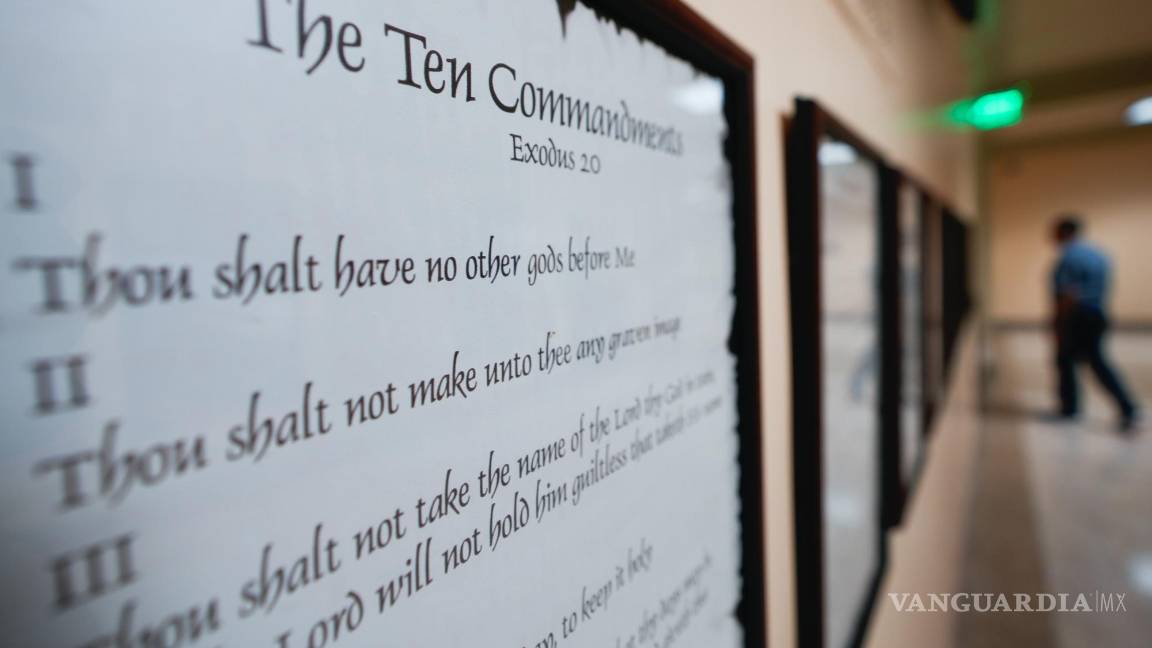 The Ten Commandments
Exodus 20
I
Thou shalt have no other gods before Me
II
Thou shalt not make unto thee any graven image
III
Thou shalt not take the name of the Lord thy God in vain,
Lord will not hold him guiltless that taketh His name
to keep it holy
VANGUARDIA|MX